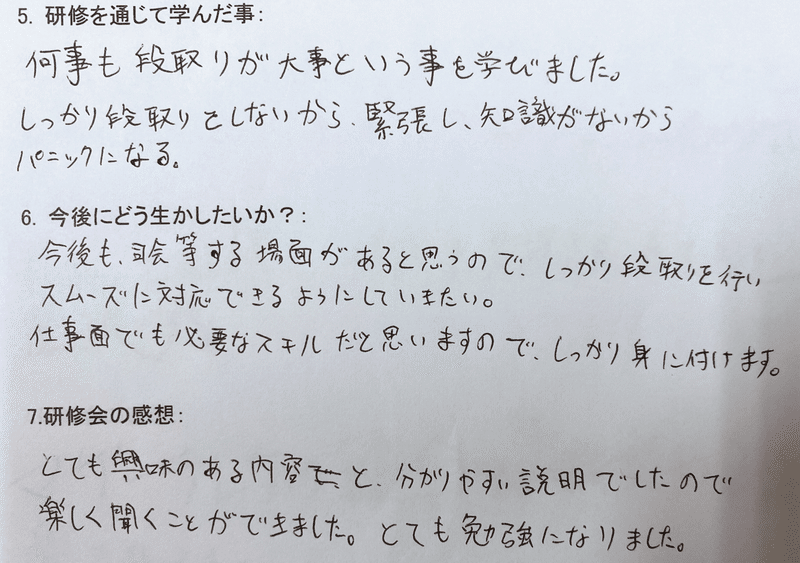 5. 研修を通じて学んだ事:
何事も段取りが大事という事を学びました。
しっかり段取りをしないから、緊張し、知識がないから
パニックになる。
6. 今後にどう生かしたいか？:
今後も、司会等する場面があると思うので、しっかり段取りを行い
スムーズに対応できるようにしていきたい。
仕事面でも必要なスキルだと思いますので、しっかり身に付けます。
7.研修会の感想:
とても興味のある内容と、分かりやすい説明でしたので
楽しく聞くことができました。とても勉強になりました。